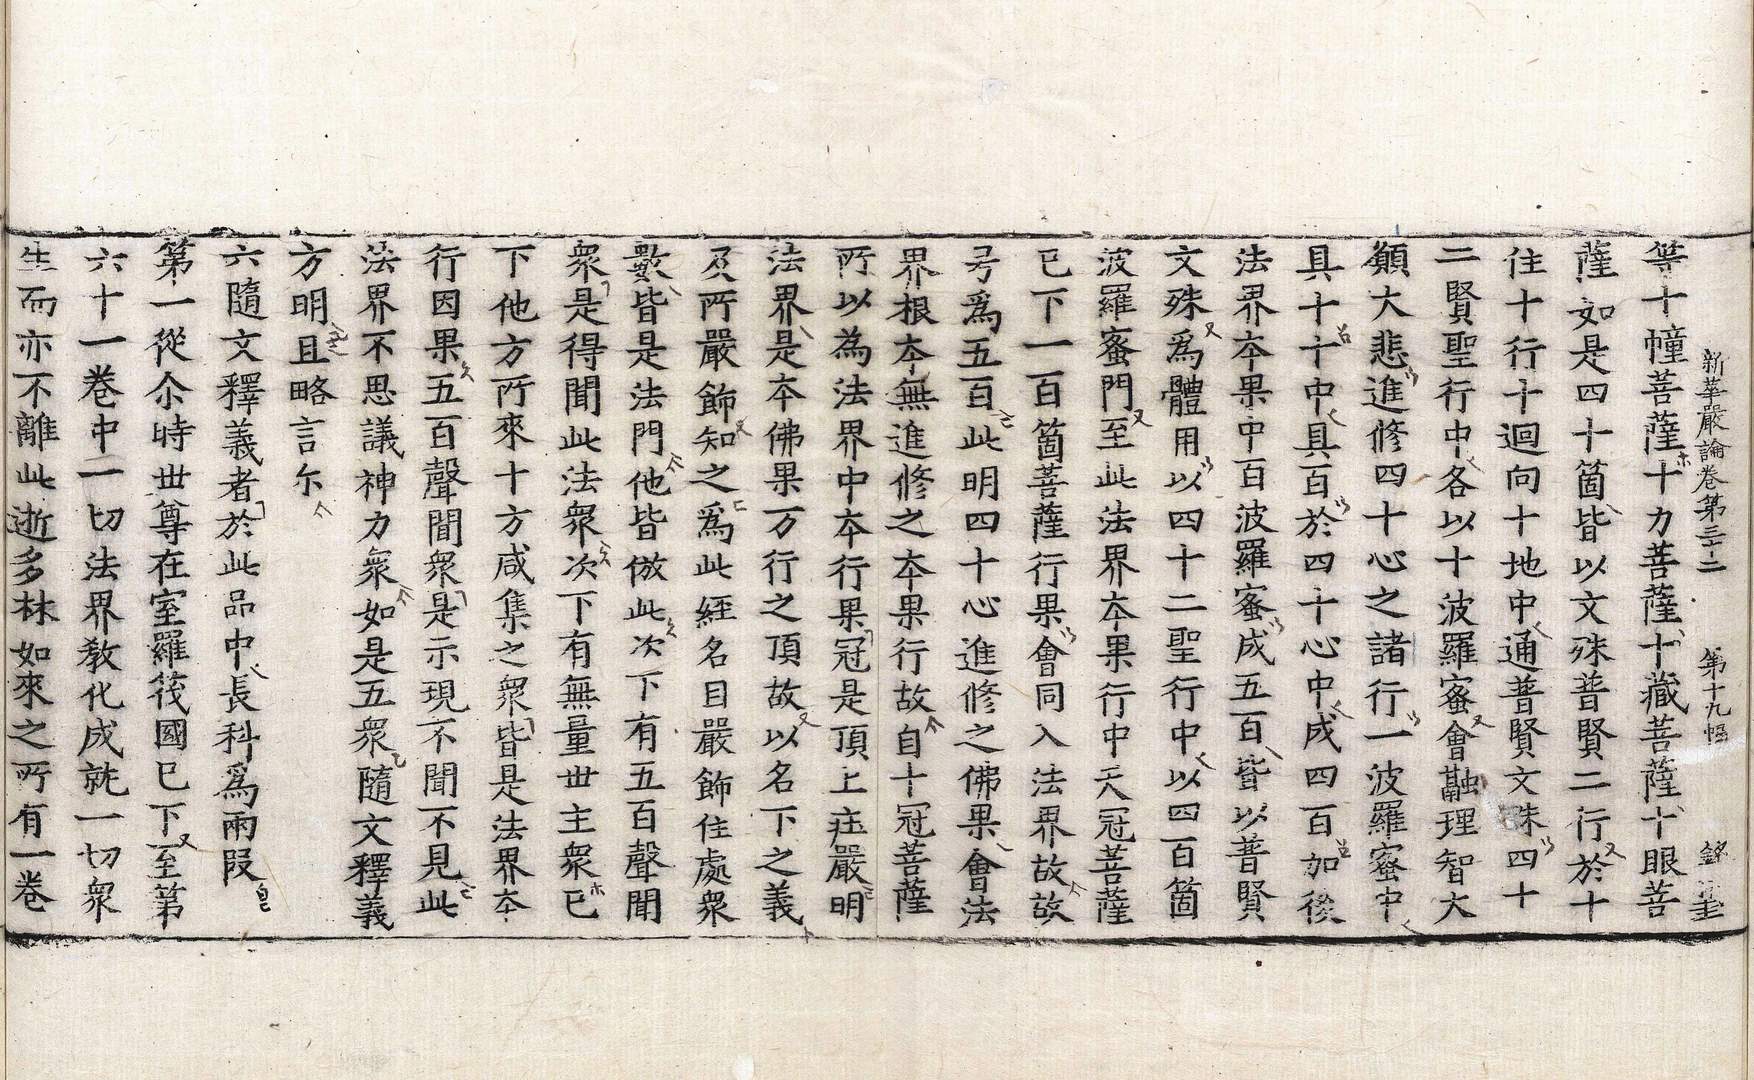 新華嚴論卷第三十二　第十九幅
等十幢菩薩十力菩薩十藏菩薩十眼菩
薩如是四十箇皆以文殊普賢二行於十
住十行十迴向十地中通普賢文殊四十
二賢聖行中各以十波羅蜜會融理智大
願大悲進修四十心之諸行一波羅蜜中
具十十中具百於四十心中成四百加後
法界本果中百波羅蜜成五百皆以普賢
文殊爲體用以四十二聖行中以四百箇
波羅蜜門至此法界本果行中天冠菩薩
已下一百箇菩薩行果會同入法界故故
号爲五百此明四十心進修之佛果會法
界根本無進修之本果行故自十冠菩薩
所以為法界中本行果冠是頂上莊嚴明
法界是本佛果万行之頂故以名下之義
及所嚴飾知之爲此經名目嚴飾住處衆
數皆是法門他皆倣此次下有五百聲聞
衆是得聞此法衆次下有無量世主衆已
下他方所來十方咸集之衆皆是法界本
行因果五百聲聞衆是示現不聞不見此
法界不思議神力衆如是五衆隨文釋義
方明且略言尔
六隨文釋義者於此品中長科爲兩段
第一從尒時世尊在室羅筏國已下至第
六十一卷中一切法界教化成就一切衆
生而亦不離此逝多林如來之所有一卷